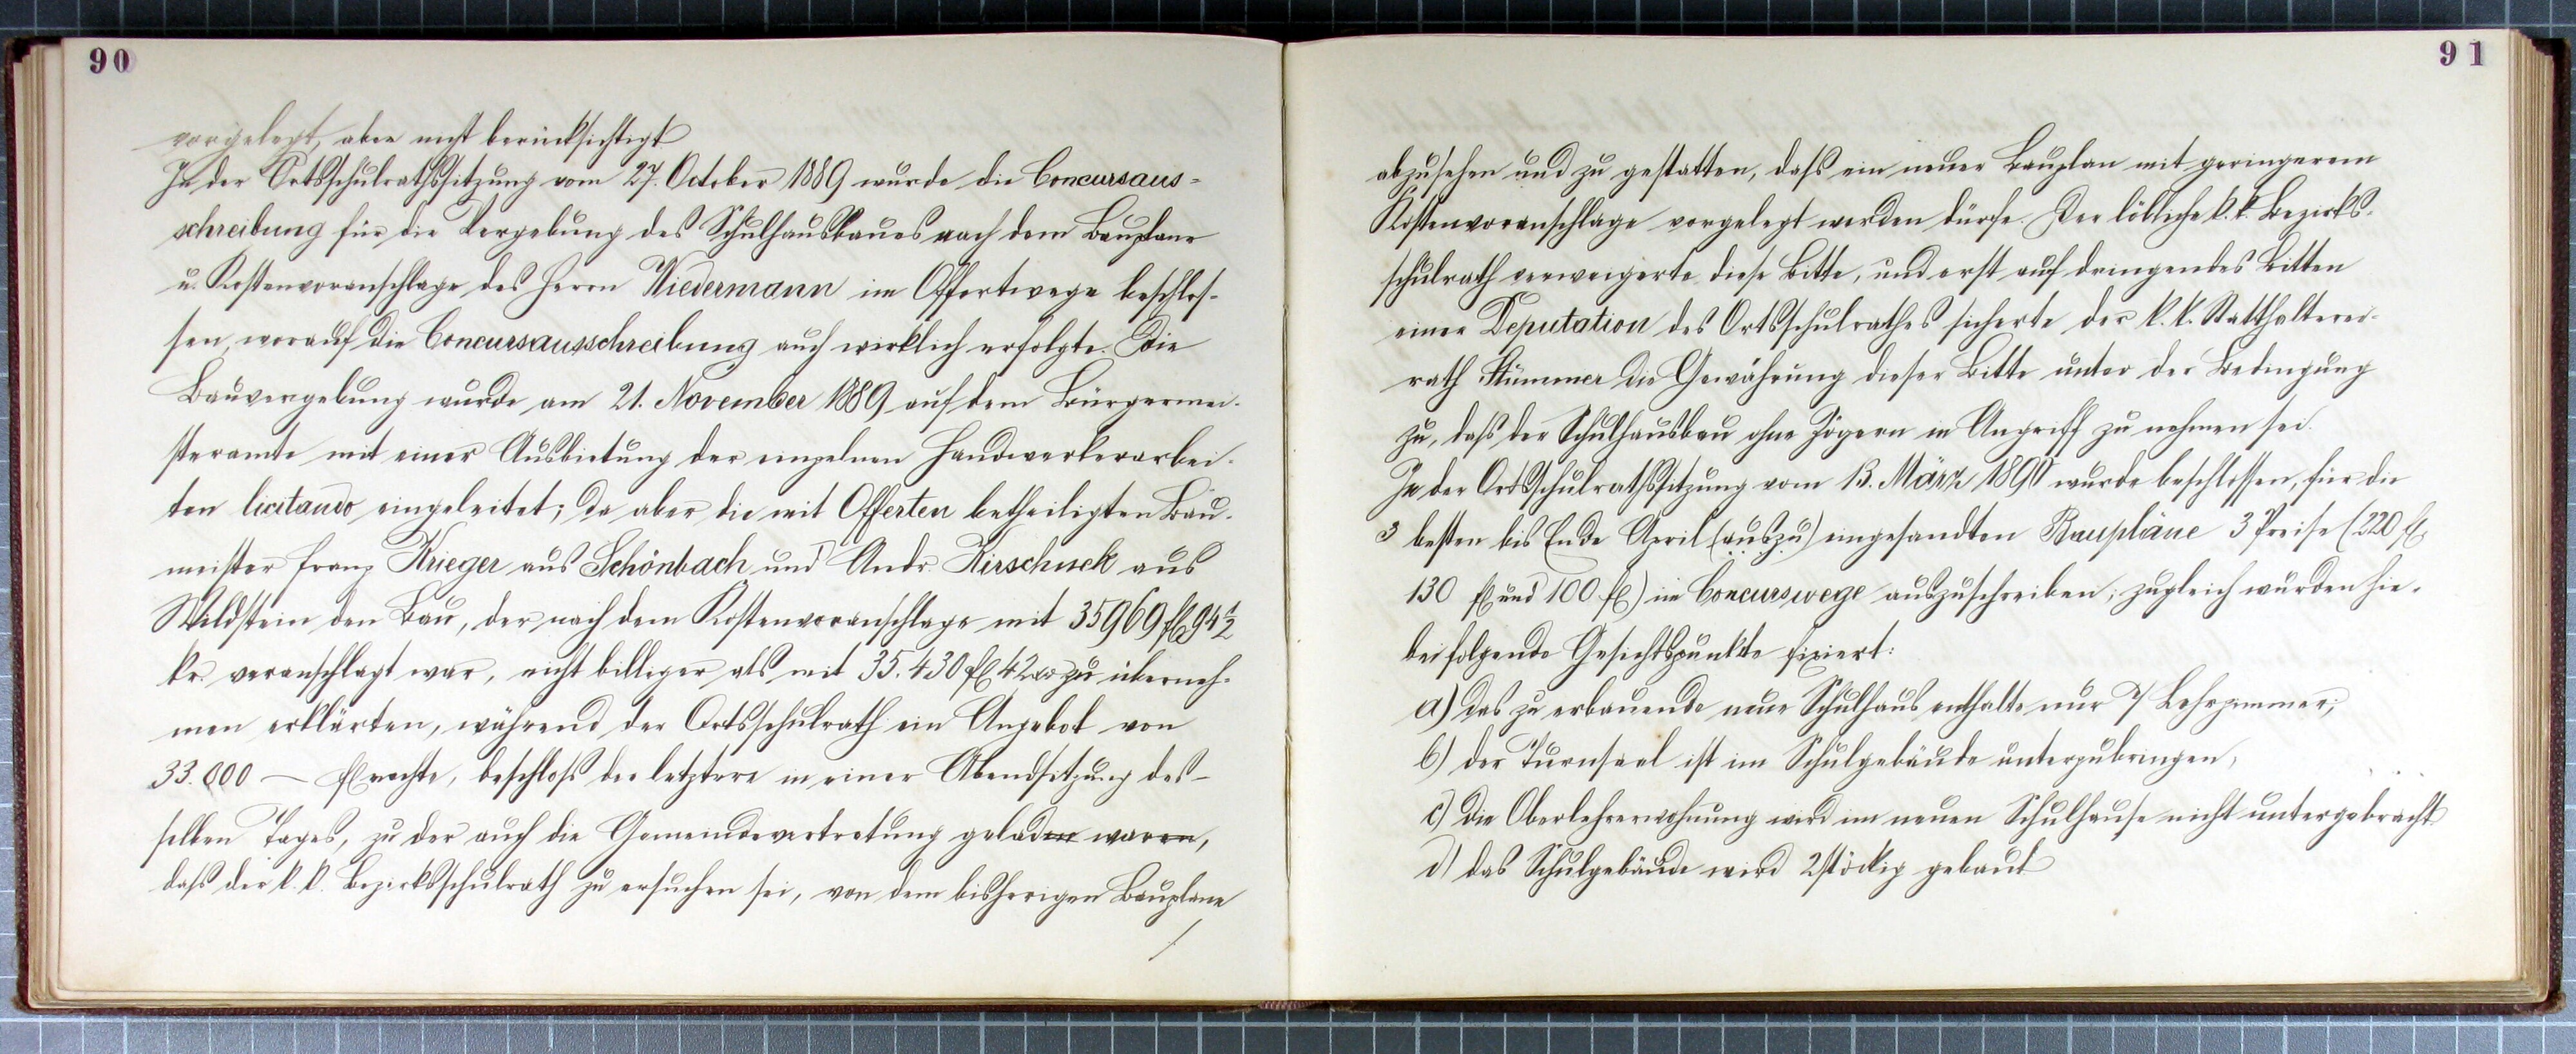 90
vorgelegt, aber nicht berücksichtigt
In der Ortsschulrathssitzung vom 27. October 1889 wurde die Concursaus-
schreibung für die Vergebung des Schulhausbaues nach dem Bauplane
u. Kostenvoranschlage des Herrn Wiedermann im Offertwege beschlos-
sen, worauf die Concursausschreibung auch wirklich erfolgte. Die
Bauvergebung wurde am 21. November 1889 auf dem Bürgermei-
steramte mit einer Ausbietung der einzelnen Handwerkerarbei-
ten licitando eingeleitet; da aber die mit Offerten betheiligten Bau-
meister Franz Krieger aus Schönbach und Andr. Kirschnek aus
Wildstein den Bau, der nach dem Kostenvoranschlage mit 35969 fl 94½
kr. veranschlagt war, nicht billiger als mit 35.430 fl 42 xr zu überneh-
men erklärten, während der Ortsschulrath ein Angebot von
33.000 — fl machte, beschloß der letztere in einer Abendsitzung des-
selben Tages, zu der auch die Gemeindevertretung geladen waren,
daß der k. k. Bezirksschulrath zu ersuchen sei, von dem bisherigen Bauplane
/
91
abzusehen und zu gestatten, daß ein neuer Bauplan mit geringerem
Kostenvoranschlage vorgelegt werden dürfe. Der löbliche k. k. Bezirks-
schulrath verweigerte diese Bitte, und erst auf dringendes Bitten
einer Deputation des Ortsschulrathes sicherte der k. k. Statthalterei-
rath Stummer die Gewährung dieser Bitte unter der Bedingung
zu, daß der Schulhausbau ohne Zögern in Angriff zu nehmen sei.
In der Ortsschulrathssitzung vom 13. März 1890 wurde beschlossen, für die
3 besten bis Ende April (auszu) eingesandten Baupläne 3 Preise (220 fl,
130 fl und 100 fl) im Concurswege auszuschreiben; zugleich wurden hie-
bei folgende Gesichtspunkte fixiert:
a) Das zu erbauende neue Schulhaus enthalte nur 7 Lehrzimmer;
b) der Turnsaal ist im Schulgebäude unterzubringen,
c) die Oberlehrerwohnung wird im neuen Schulhause nicht untergebracht
d) das Schulgebäude wird 2stöckig gebaut